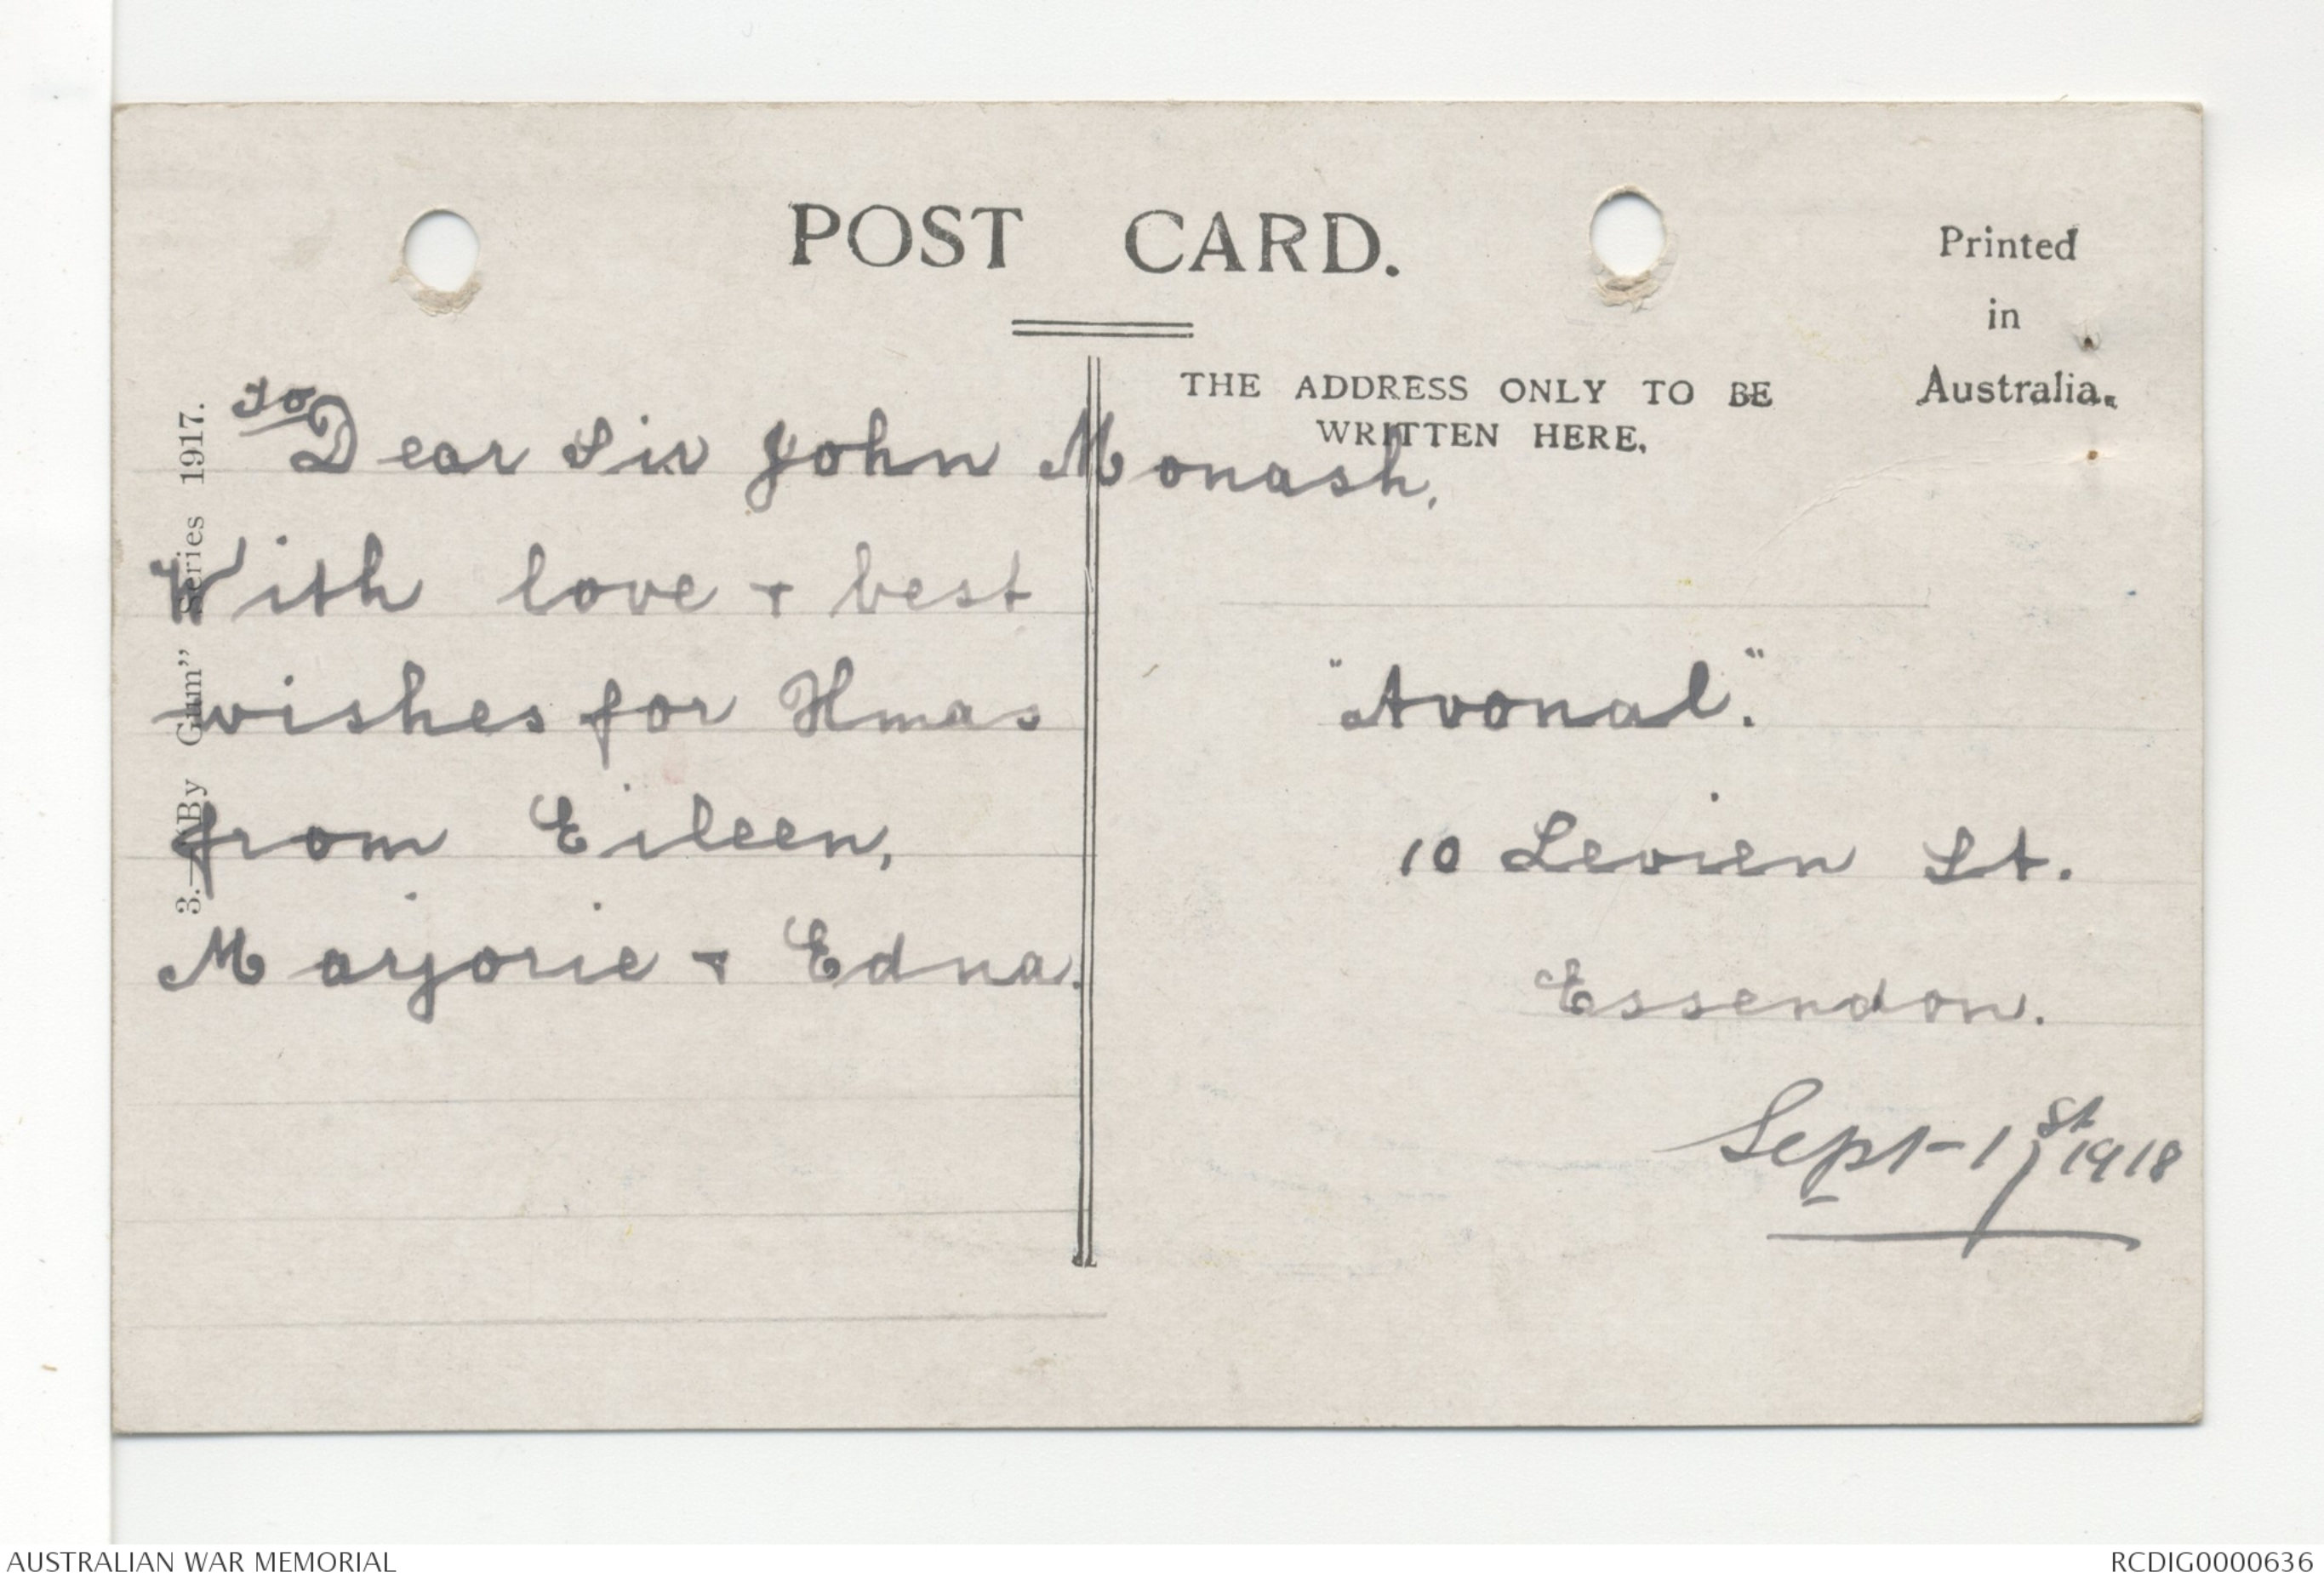 POST CARD.
Printed
in
Australia.
THE ADDRESS ONLY TO BE
WRITTEN HERE.
3.—"By Gum" Series 1917.
To
Dear Sir John Monash,
With love + best
wishes for Xmas
from Eileen,
Marjorie + Edna.
"Avonal."
10 Levien St.
Essendon.
Sept- 1st 1918
AUSTRALIAN WAR MEMORIAL
RCDIG0000636